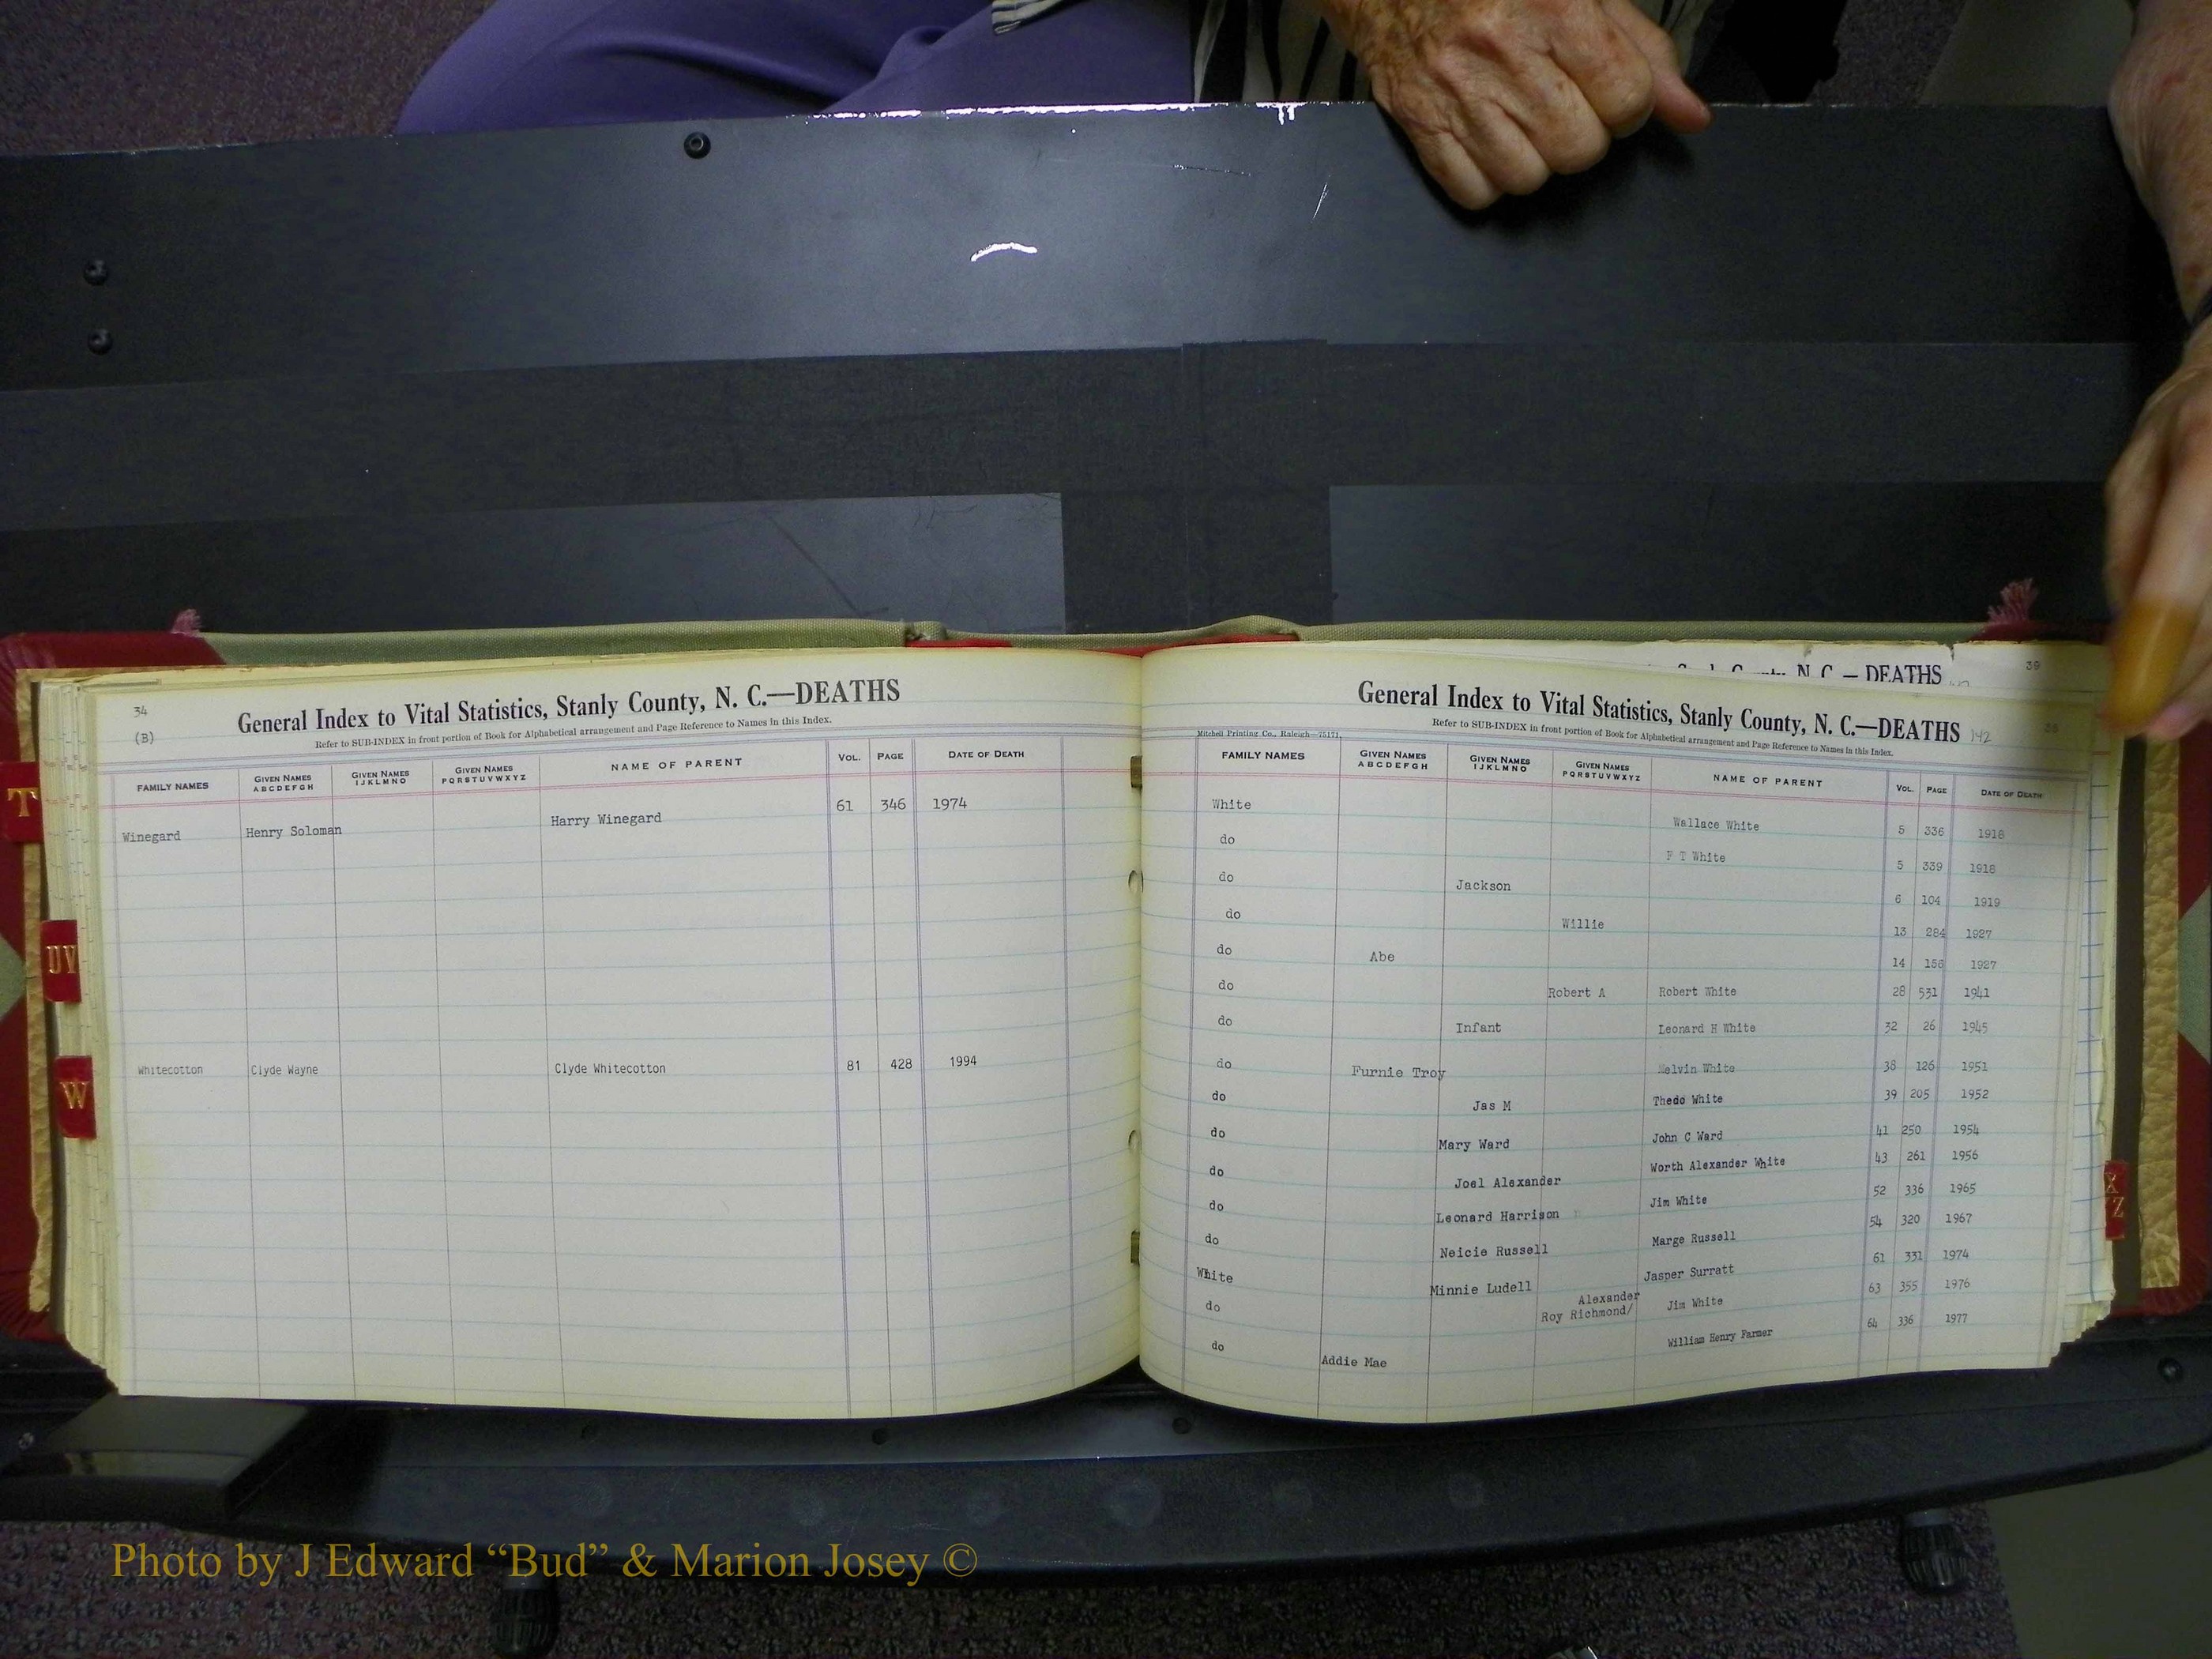 34
(B)
General Index to Vital Statistics, Stanly County, N. C.—DEATHS
Refer to SUB-INDEX in front portion of Book for Alphabetical arrangement and Page Reference to Names in this Index.
FAMILY NAMES GIVEN NAMES ABCDEFGH GIVEN NAMES IJKLMNO GIVEN NAMES PQRSTUVWXYZ NAME OF PARENT VOL. PAGE DATE OF DEATH
Winegard Henry Soloman Harry Winegard 61 346 1974
Whitecotton Clyde Wayne Clyde Whitecotton 81 428 1994
T
UV
W
N. C. — DEATHS
39
General Index to Vital Statistics, Stanly County, N. C.—DEATHS 142
Refer to SUB-INDEX in front portion of Book for Alphabetical arrangement and Page Reference to Names in this Index.
Mitchell Printing Co., Raleigh—75171
FAMILY NAMES GIVEN NAMES ABCDEFGH GIVEN NAMES IJKLMNO GIVEN NAMES PQRSTUVWXYZ NAME OF PARENT VOL. PAGE DATE OF DEATH
White Wallace White 5 336 1918
do F T White 5 339 1918
do Jackson 6 104 1919
do Willie 13 284 1927
do Abe 14 156 1927
do Robert A Robert White 28 531 1941
do Infant Leonard H White 32 26 1945
do Furnie Troy Melvin White 38 126 1951
do Jas M Thedo White 39 205 1952
do Mary Ward John C Ward 41 250 1954
do Joel Alexander Worth Alexander White 43 261 1956
do Leonard Harrison Jim White 52 336 1965
do Neicie Russell Marge Russell 54 320 1967
White Minnie Ludell Jasper Surratt 61 331 1974
do Roy Richmond/ Alexander Jim White 63 355 1976
do Addie Mae William Henry Farmer 64 336 1977
X
Z
Photo by J Edward “Bud” & Marion Josey ©